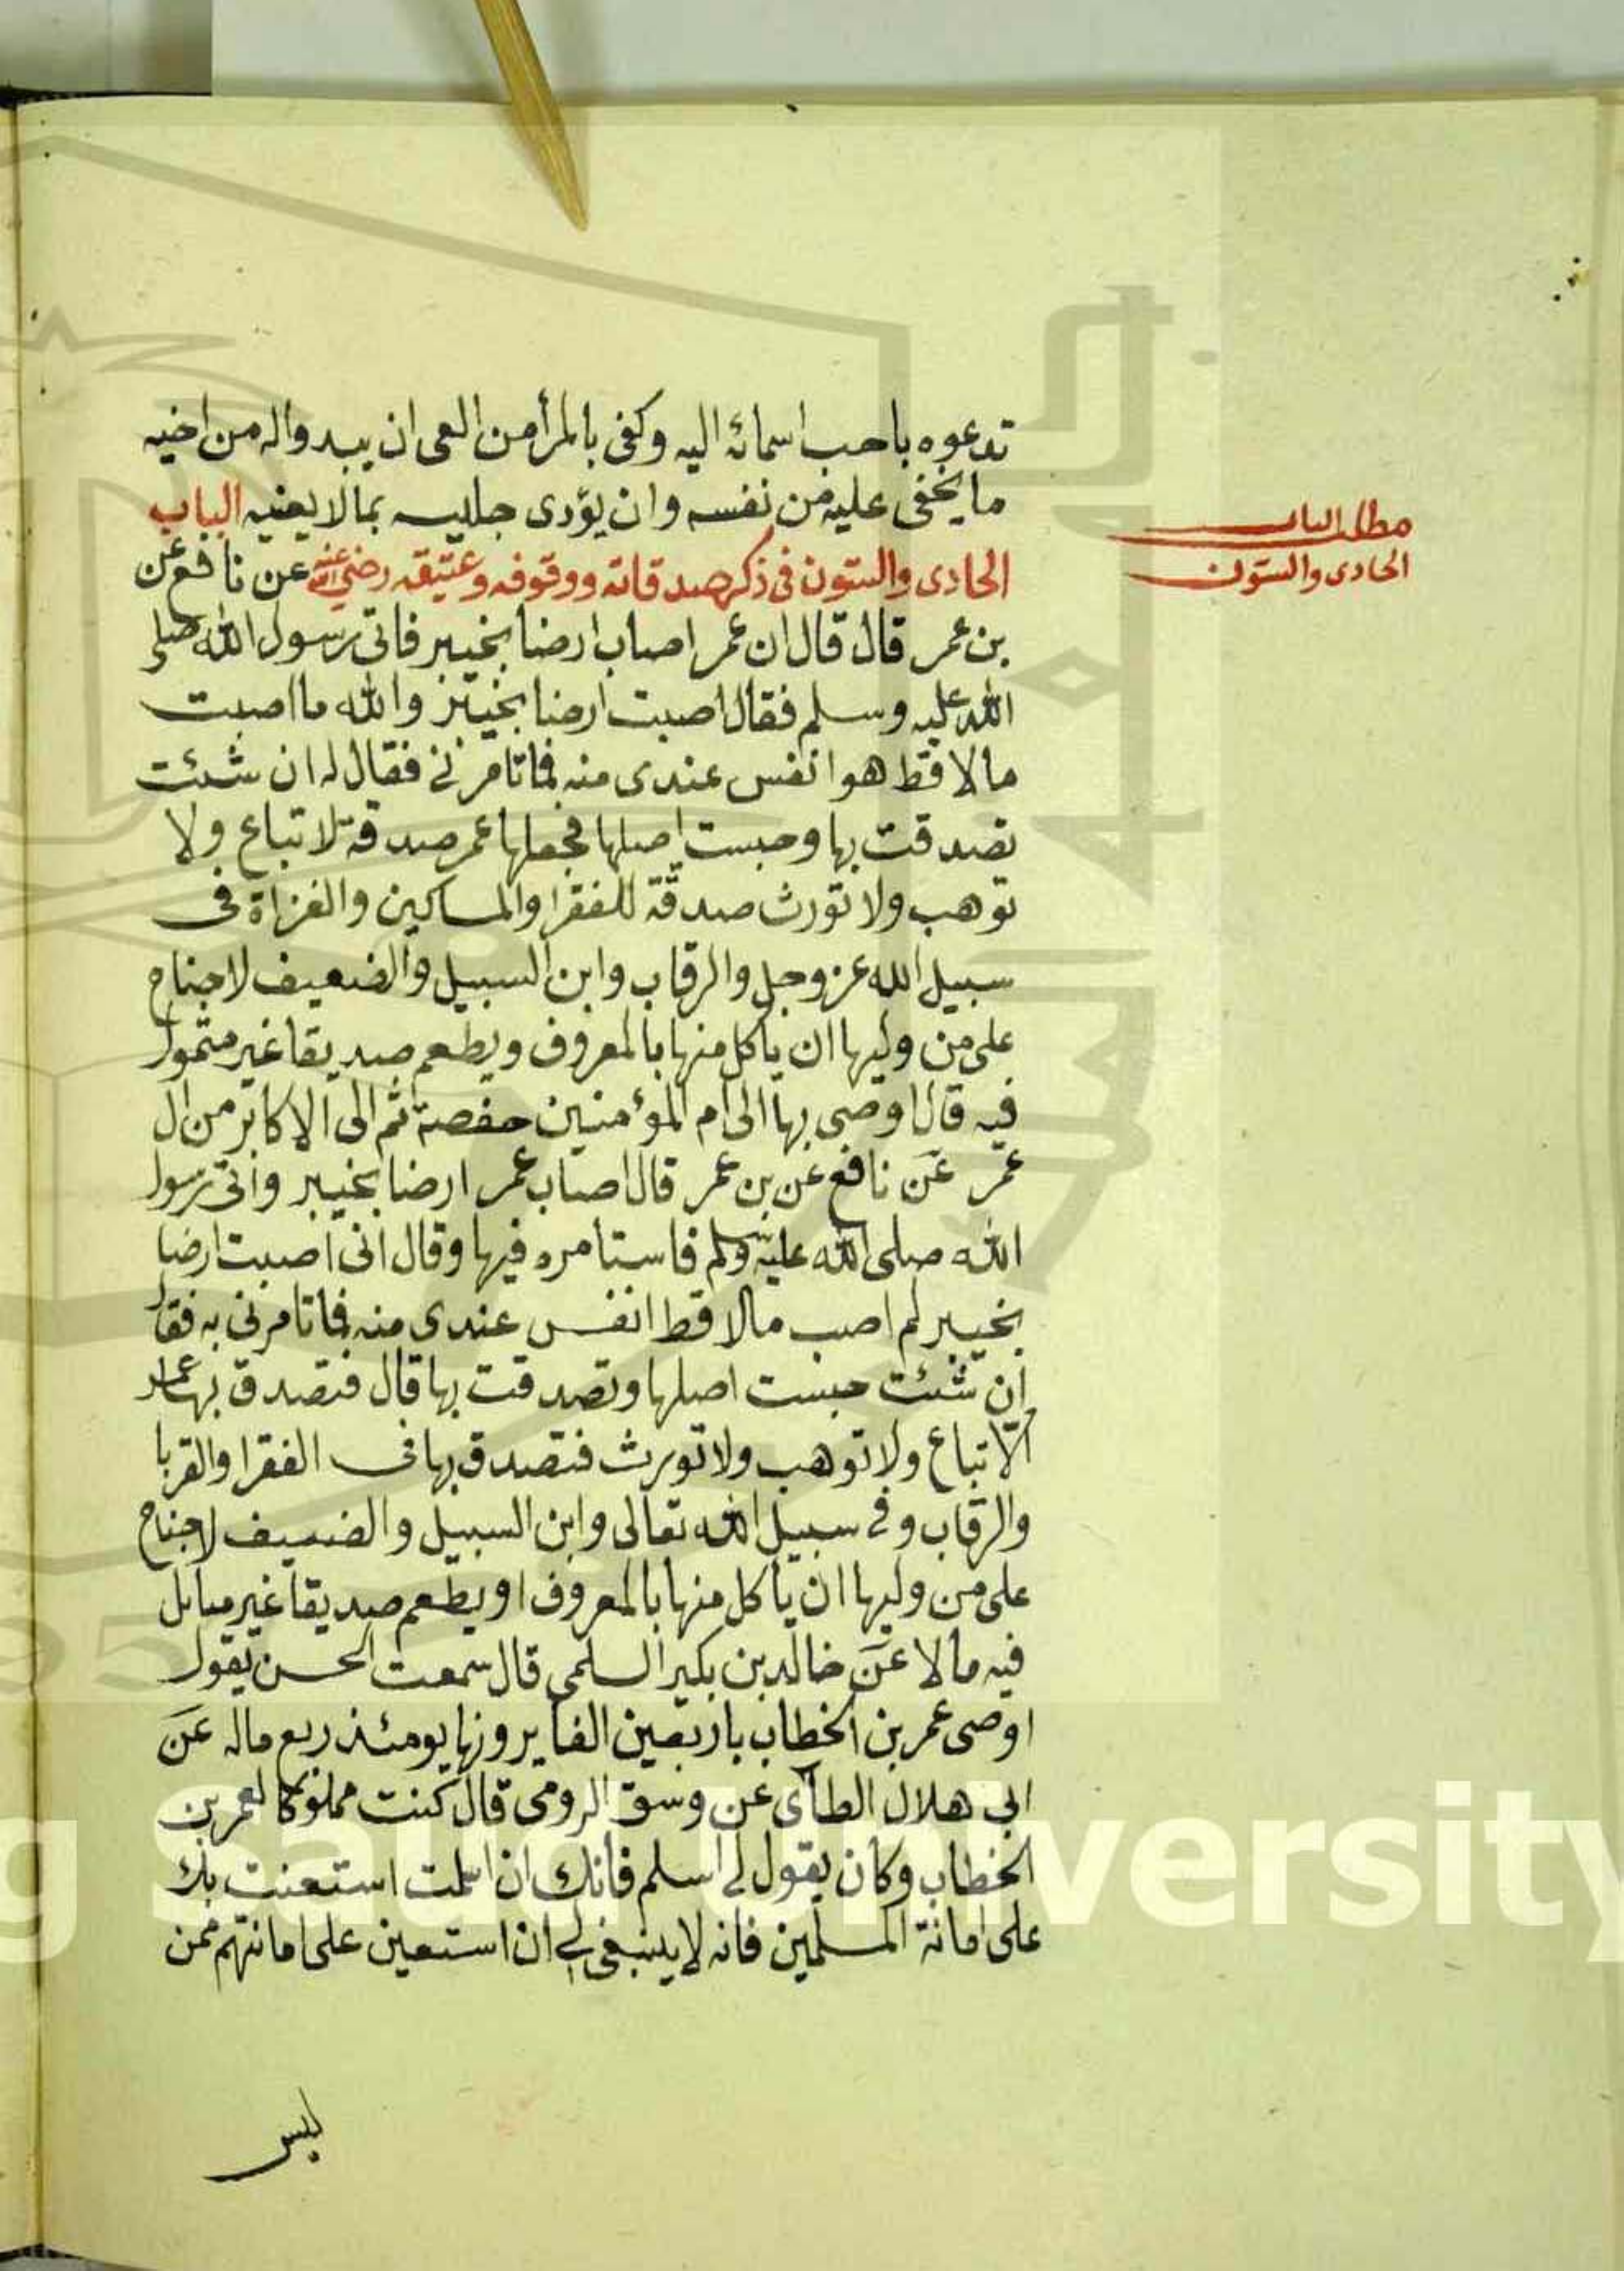 تدعوه باحب اسمائه اليه وكفى بالمرأ من العى ان يبدو اله من اخيه
ما يخفى عليه من نفسه وان يؤدى جليسه بما لا يعنيه الباب
مطلب الباب
الحادى والستون
الحادى والستون فى ذكر صدقاته ووقوفه وعتيقه رضى الله عنه عن نافع عن
بن عمر قال قال ان عمر اصاب ارضا بخيبر فاتى رسول الله صلى
الله عليه وسلم فقال اصبت ارضا بخيبر والله ما اصبت
مالا قط هو انفس عندى منه فما تامرنى فقال له ان شئت
تصدقت بها وحبست اصلها فجعلها عمر صدقة لا تباع ولا
توهب ولا تورث صدقة للفقرا والمساكين والغزاة فى
سبيل الله عز وجل والرقاب وابن السبيل والضعيف لا جناح
على من وليها ان ياكل منها بالمعروف ويطعم صديقا غير متمول
فيه قال اوصى بها الى ام المؤمنين حفصة ثم الى الاكابر من ال
عمر عن نافع عن بن عمر قال اصاب عمر ارضا بخيبر واتى رسول
الله صلى الله عليه وسلم فاستامره فيها وقال انى اصبت ارضا
بخيبر لم اصب مالا قط انفس عندى منه فما تامرنى به فقال
ان شئت حبست اصلها وتصدقت بها قال فتصدق بها عمر
الا تباع ولا توهب ولا تورث فتصدق بها فى الفقرا والقربا
والرقاب وفى سبيل الله تعالى وابن السبيل والضعيف لا جناح
على من وليها ان ياكل منها بالمعروف او يطعم صديقا غير مماثل
فيه مالا عن خالد بن بكير السلمى قال سمعت الحسن يقول
اوصى عمر بن الخطاب باربعين الفا يرونها يومئذ ربع ماله عن
ابى هلال الطآى عن وسق الرومى قال كنت مملوكا لعمر بن
الخطاب وكان يقول لى اسلم فانك ان اسلمت استعنت بك
على امانة المسلمين فانه لا ينبغى لى ان استعين على امانتهم ممن
ليس
g Saud University